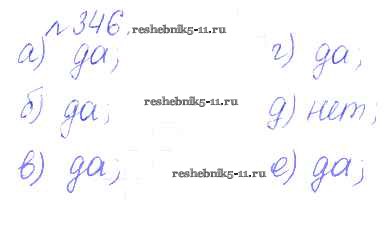 №346. reshebnik5-11.ru
а) да; г) да;
б) да; reshebnik5-11.ru д) нет;
в) да; reshebnik5-11.ru е) да;